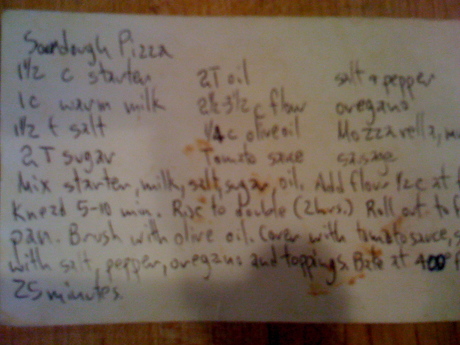 Sourdough Pizza
1½ c starter 2T oil salt & pepper
1c warm milk 2½-3½ c flour oregano
1½ t salt ¼ c olive oil Mozzarella,
2T sugar Tomato sauce sausage
Mix starter, milk, salt, sugar, oil. Add flour ½c at
Knead 5-10 min. Rise to double (2 hrs.) Roll out to
pan. Brush with olive oil. Cover with tomato sauce,
with salt, pepper, oregano and toppings. Bake at 400°
25 minutes.